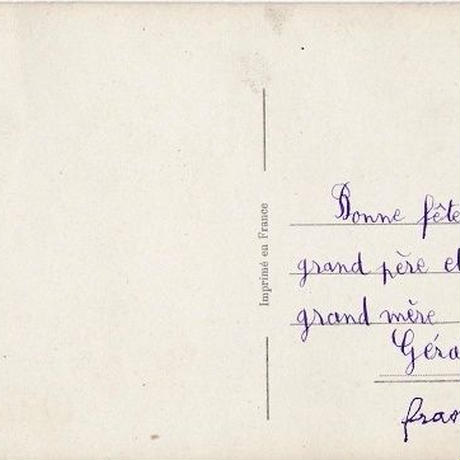 Imprimé en France
Bonne fête
grand père et
grand mère
Géra
fran